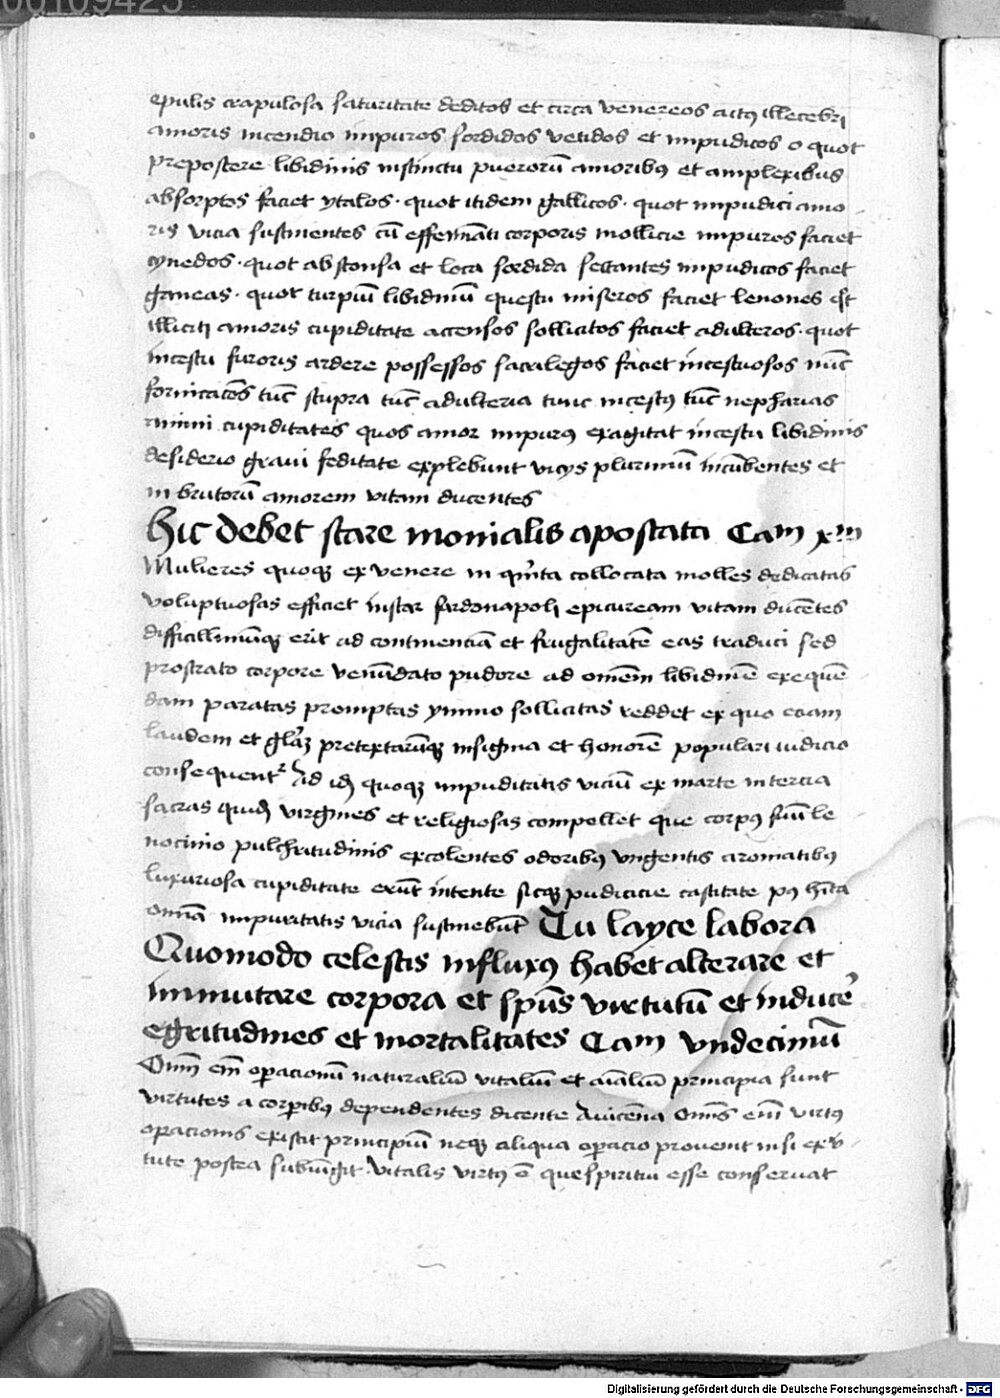 00109425
epulis crapulosa saturitate deditos et circa venereos actus illecebri
amoris incendio impuros sordidos vetidos et impudicos o quot
prepostere libidinis instinctu puerorū amoribus et amplexibus
absorptos faciet ytalos · quot itidem gallicos · quot impudici amo
ris vicia sustinentes cū effeminati corporis mollicie impuros faciet
cynedos · quot abstonsa et loca sordida sectantes impudicos faciet
ganeas · quot turpiū libidinū questu miseros faciet lenones
illiciti amoris cupiditate accensos sollicitos faciet adulteros · quot
incestu furoris ardere possessos sacrilegos faciet incestuosos nūc
fornicacōes tūc stupra tūc adulteria tunc incestus tūc nepharias
animi cupiditates quos amor impurus exagitat incestu libidinis
desiderio graui feditate explebunt vicys plurimū incūbentes et
in brutorū amorem vitam ducentes
Hic debet stare monialis apostata Cam xm
Mulieres quoqʒ ex venere in qīnta collocata molles dedicatas
voluptuosas efficiet instar sardonapoli epicuream vitam ducētes
difficillimūqʒ erit ad continenciā et frugalitatē eas traduci sed
prostrato corpore venūdato pudore ad omēm libidinē exequē
dam paratas promptas ymmo sollicitas reddet ex quo eciam
laudem et glāʒ pretextarūqʒ insignia et honorē populari iudicio
consequentʳ Ad idʒ quoqʒ impudicitatis viciū ex marte in tercia
sacras quidʒ virgines et religiosas compellet que corpus suū le
nocinio pulchritudinis excolentes odoribus vngentis aromatibus
luxuriosa cupiditate erūt intente sicqʒ pudicicie castitate pus hīta
omīa impuritatis vicia sustinebūt Tu layce labora
Quomodo celestis influxus habet alterare et
immutare corpora et spūs virtutū et inducē
egritudines et mortalitates Cam vndecimū
Omī em̄ operacionū naturaliū vitaliū et aīaliū principia sunt
virtutes a corpībus dependentes dicente Auicēna Omīs enī virtus
operacionis existit principiū neqʒ aliqua operacio prouenit nisi ex v
tute postea subiūgit Vitalis virtus ē que spiritui esse conseruat
Digitalisierung gefördert durch die Deutsche Forschungsgemeinschaft - DFG